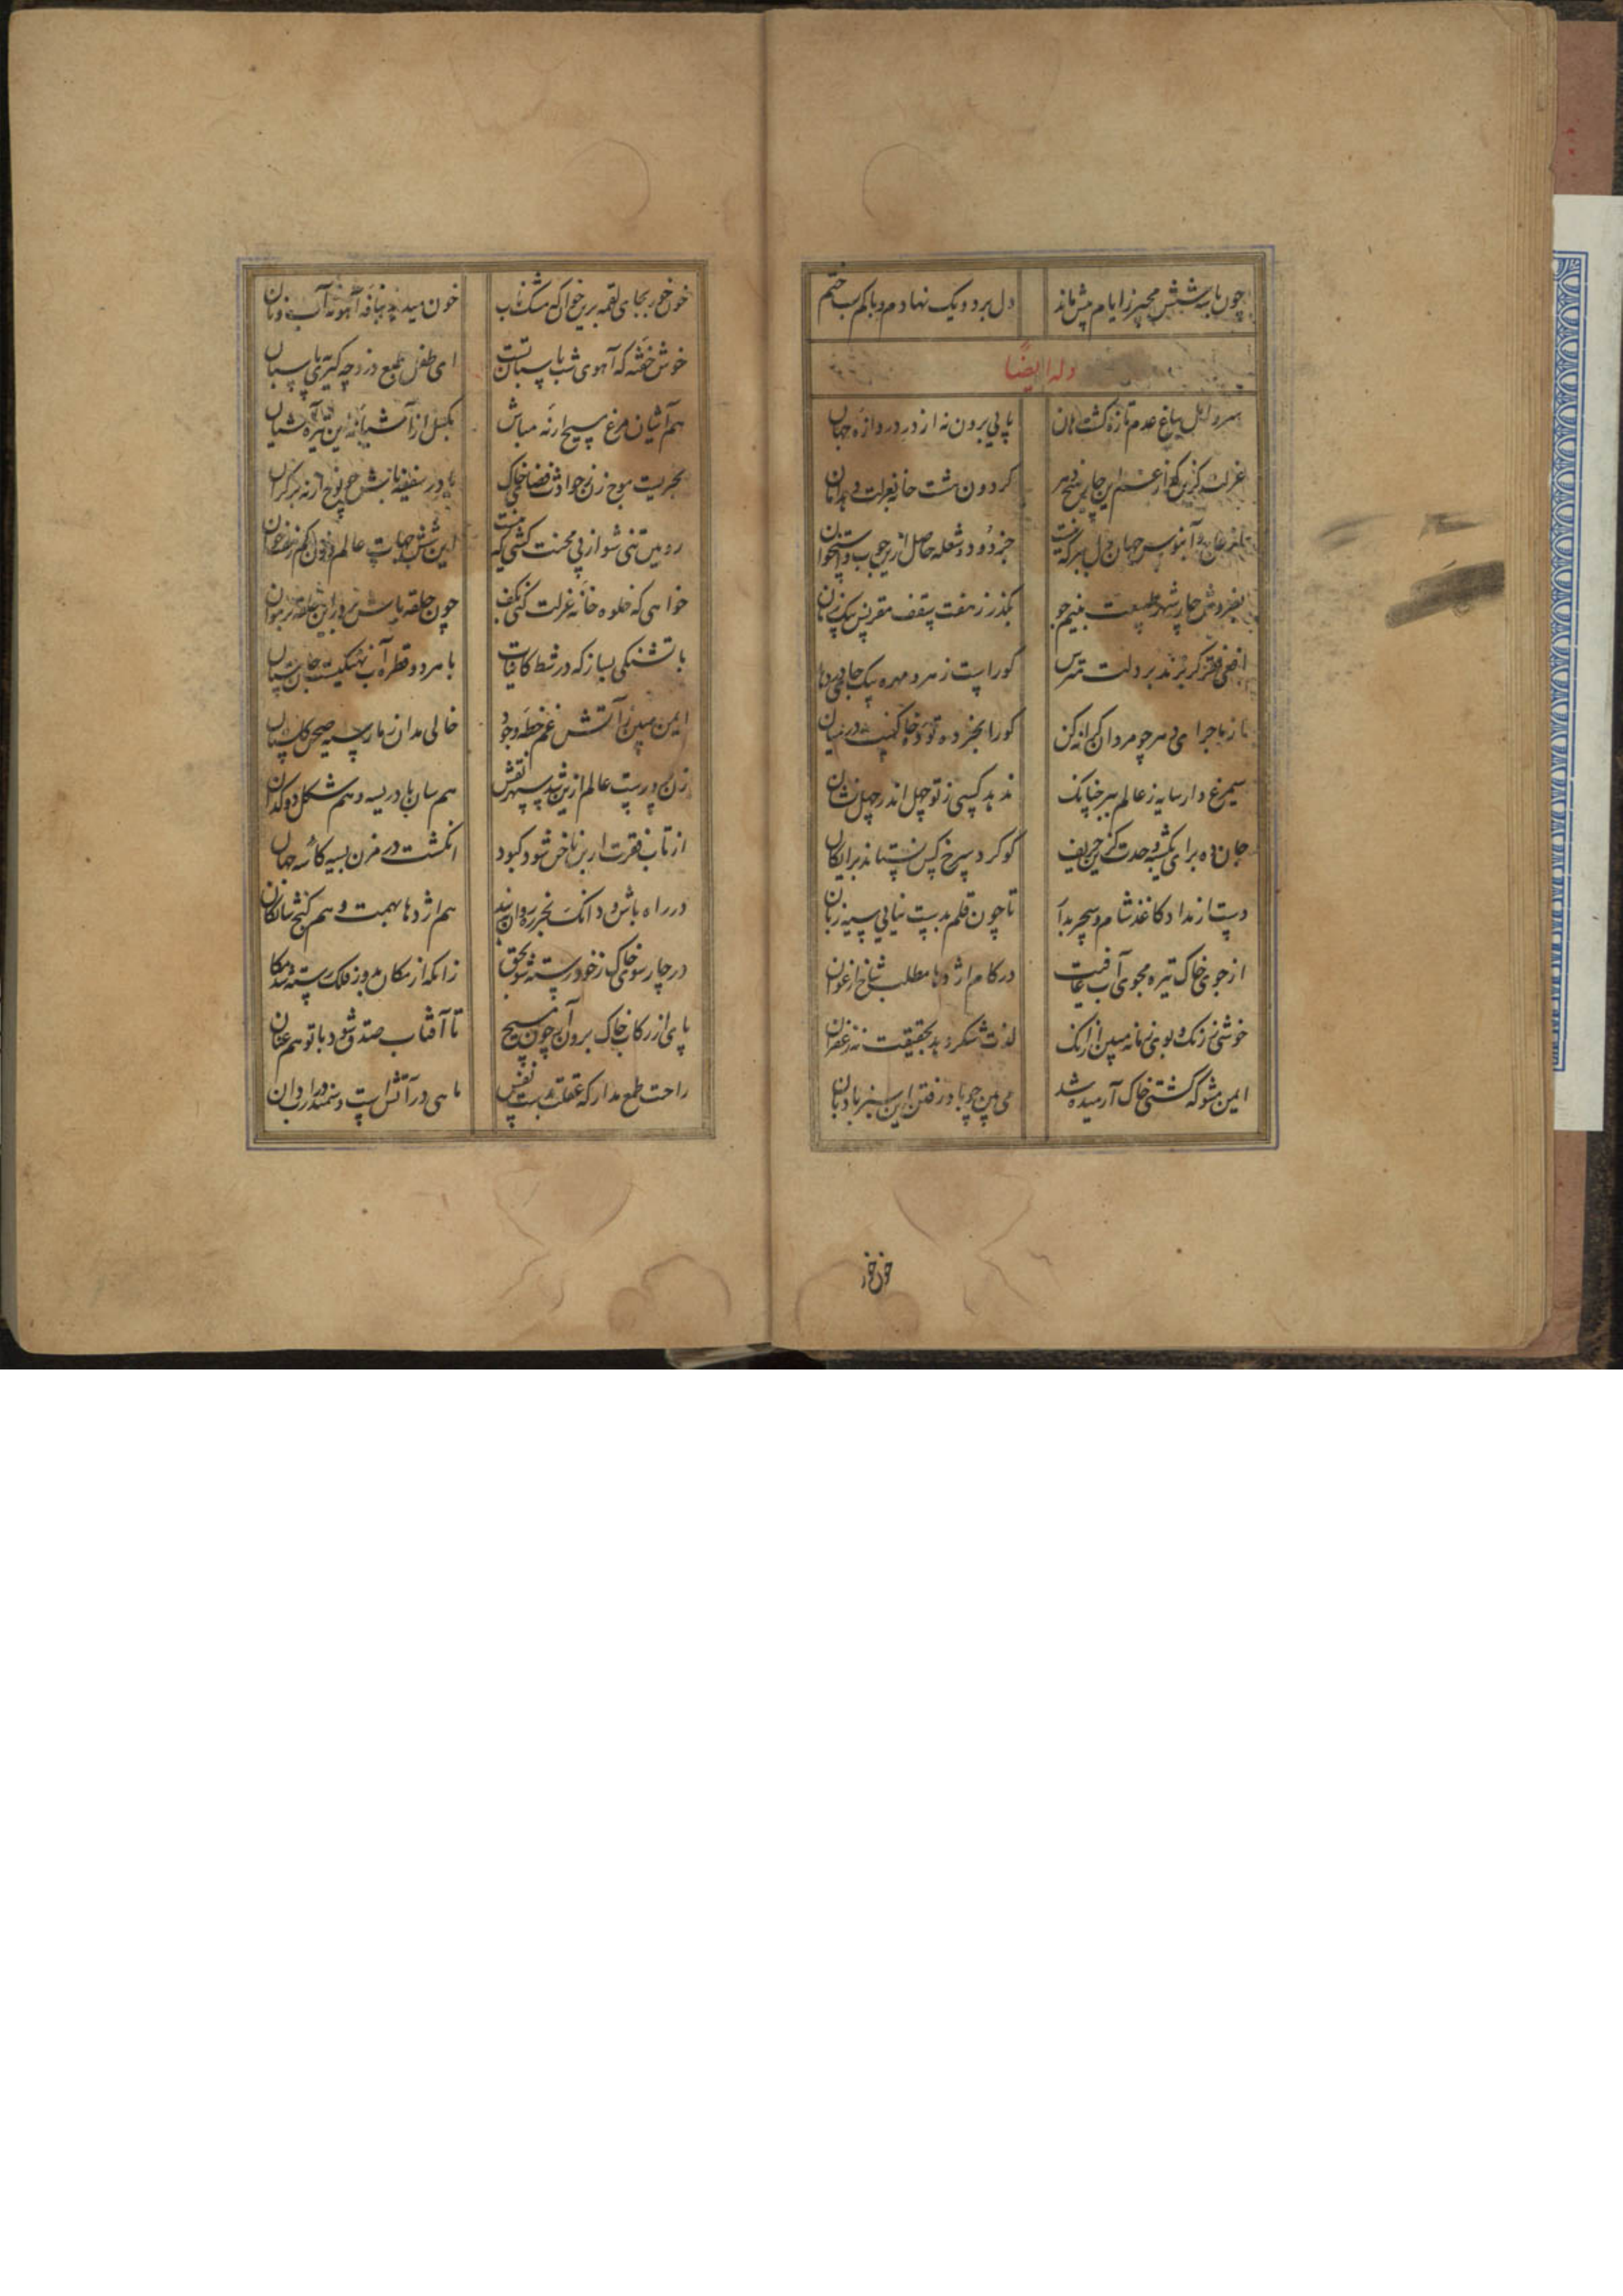 چون با سه شش مجیر ز ایام پیش ماند دل بر دو یک نهادم و با کم بساختم
وله ایضاً
سرو امل بباغ عدم تازه گشت هان پایی برون نه از در دروازه جهان
عزلت گزین که از این چار میخ دهر کردون هشت خانه بعزلت دهد امان
عاج و آبنوس جهان دل مبر که نیست جز دود و شعله حاصل ازین چوب و استخوان
بفروش چار شهر طبیعت به نیم جو بگذر ز هفت سقف مقرنس بیک زمان
افعی فقر گر بزند بر دلت مترس کو راست زهر و مهره بیک جای در دهان
کو را بجز ده تو ده خاکیست در میان
سیمرغ وار سایه ز عالم ببر چنانک ندهد کسی ز تو چل اندر چهل نشان
جان ده برای یکشبه وحدت که این حریف گوگرد سرخ کس نستاند برایگان
دست از مداد و کاغذ شام و سحر بدار تا چون قلم بدست نیایی سیه زبان
از جوی خاک تیره مجوی آب عافیت در کام اژدها مطلب شاخ ارغوان
خوشی ز رنگ و بوی زمانه مبین از آنک لذت شکر دهد بحقیقت نه زعفران
ایمن مشو که کشتی خاک آرمیده شد می بین چو باد رفتن این سبز بادبان
خون خور
خون خور بجای لقمه برین خوان که مشک ناب خون میدهد بنافه آهو نه آب و نان
خوش خفته که آهوی شب پاسبان تست ای طفل طبع دزد چه گیری بپاسبان
هم آشیان مرغ مسیح ار نه مباش بگسل از آشیانه این تیره آشیان
بحریست موج زن ز حوادث فضای خاک یا در سفینه باش چو نوح ار نه بر کران
رویین تنی شو از پی محنت کشی که هست این شش جهات عالم دون کم ز هفتخوان
خواهی که خلوه خانه عزلت کنی بکف چون حلقه باش بر در این خانه
با تشنگی بساز که در شط کاینات با هر دو قطره آب نهنگیست جان ستان
ایمن مبین ز آتش غم خطه وجود خالی مدان ز مار سیه صحن گلستان
زن سیرتست عالم ازین شد سپهر نقش هم سان بادریسه و هم شکل دوکدان
از تاب فقرت ار بن ناخن شود کبود انگشت در مزن بسیه کاسه جهان
در راه باش و دانک نخیزد ز رهروان هم اژدها بهمت و هم گنج شایگان
در چار سوی خاک ز خود رسته شو بحق زانکه از مکان بدر و ز فلک رسته شد مکان
پای از رکاب خاک برون آر چون مسیح تا آفتاب صدق شود با تو هم عنان
راحت طمع مدار که عقلت بست نفس ماهی در آتش است و سمندر در آبدان